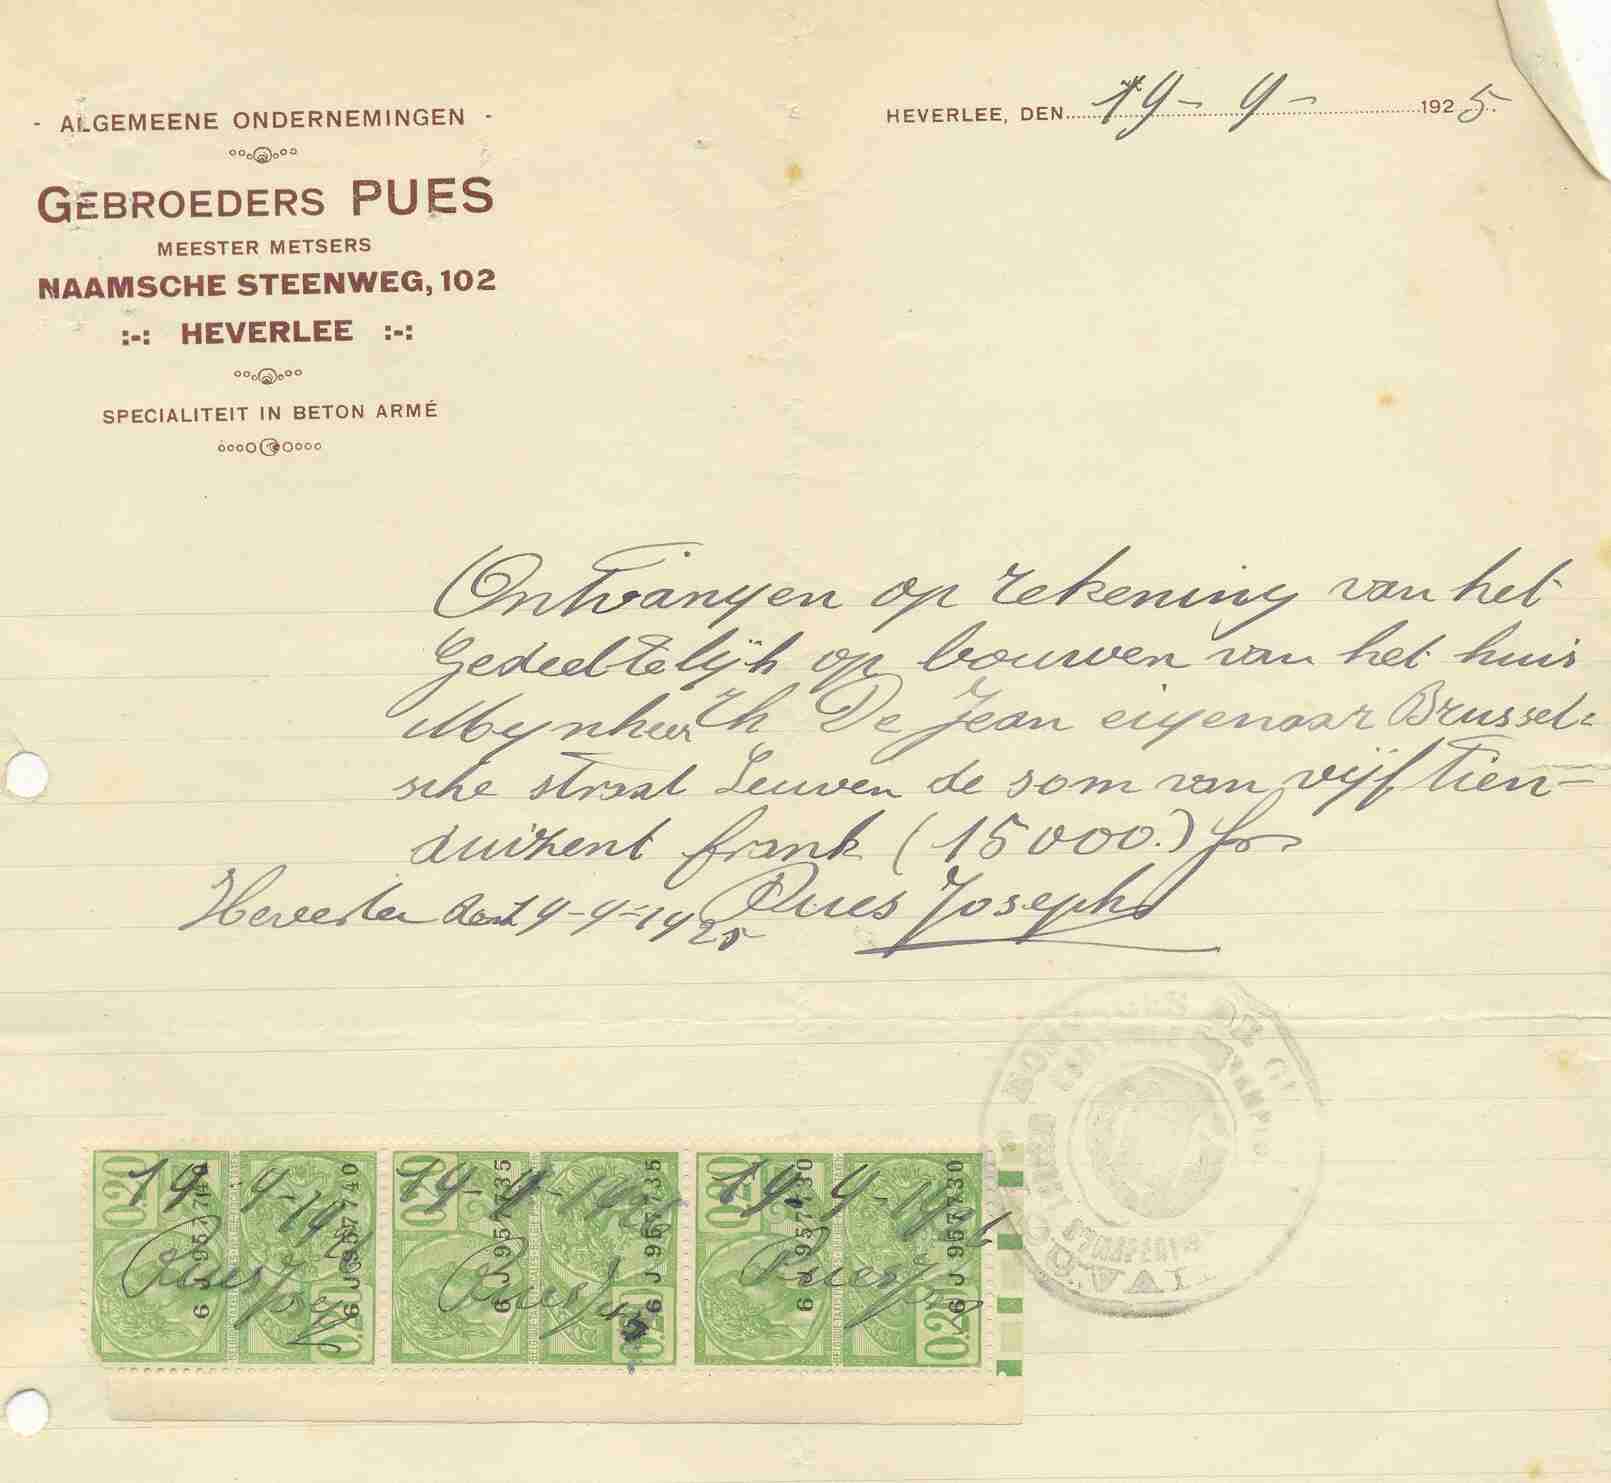 - ALGEMEENE ONDERNEMINGEN -
GEBROEDERS PUES
MEESTER METSERS
NAAMSCHE STEENWEG, 102
:-: HEVERLEE :-:
SPECIALITEIT IN BETON ARMÉ
HEVERLEE, DEN 19 - 9 - 1925.
Ontvangen op rekening van het
Gedeeltelijk op bouwen van het huis
Mynheer Th De Jean eigenaar Brussel=
sche straat Leuven de som van vijftien-
duizent frank (15000.) fr
Heverlee den 19-9-1925 Pues Joseph
0.20 6 J 957740 6 J 957740 0.20
0.20 6 J 957735 6 J 957735 0.20
0.20 6 J 957730 6 J 957730 0.20
19-9-19 19-9-19 19-9-19
Pues Pues Pues